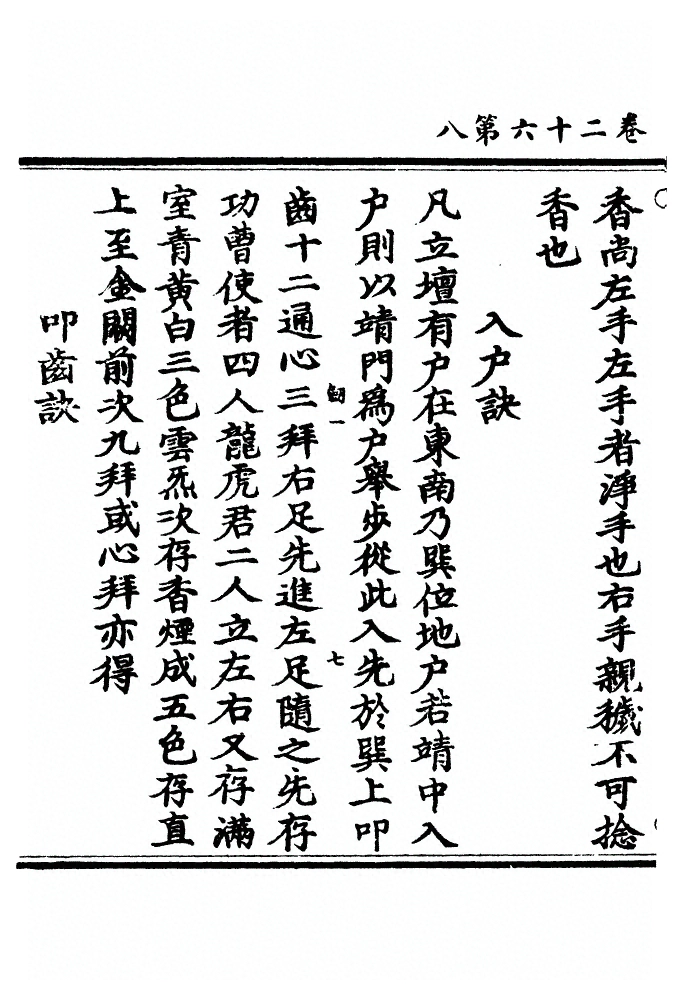 卷二十六第八
香尚左手左手者淨手也右手親穢不可捻
香也
入户訣
凡立壇有户在東南乃巽位地户若靖中入
户則以靖門爲户舉步從此入先於巽上叩
齒十二通心三拜右足先進左足隨之先存
功曹使者四人龍虎君二人立左右又存滿
室青黃白三色雲炁次存香煙成五色存直
上至金闕前次九拜或心拜亦得
叩齒訣